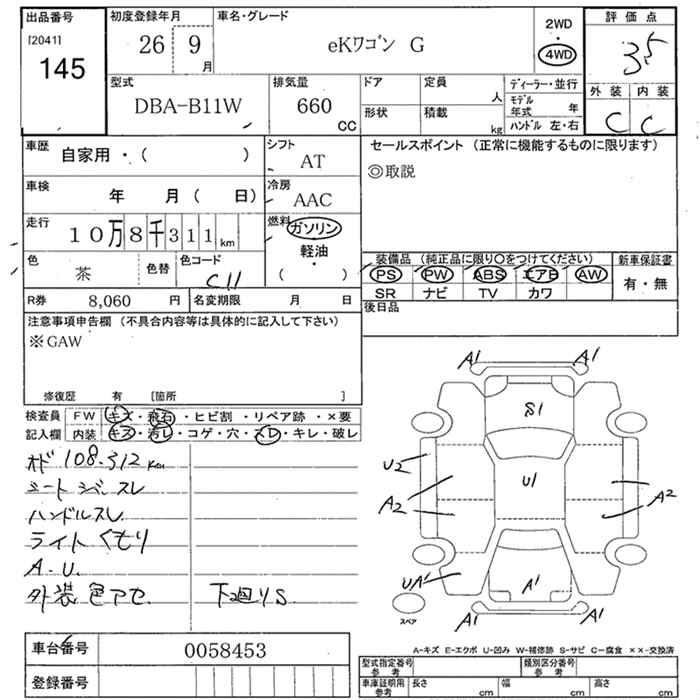 出品番号
[2041]
145
初度登録年月
26 9
月
車名・グレード
eKワゴン G
2WD
・
4WD
評価点
3.5
外装 内装
C C
型式
DBA-B11W
排気量
660
CC
ドア
形状
定員
人
積載
kg
ディーラー・並行
モデル
年式 年
ハンドル 左・右
車歴
自家用・( )
シフト
AT
車検
年 月( 日)
冷房
AAC
走行
10万8千311km
燃料
ガソリン
軽油
・
( )
色
茶
色替
色コード
C11
R券 8,060 円
名変期限 月 日
セールスポイント (正常に機能するものに限ります)
◎取説
装備品 (純正品に限り○をつけてください)
PS PW ABS エアB AW
SR ナビ TV カワ
新車保証書
有・無
後日品
注意事項申告欄 (不具合内容等は具体的に記入して下さい)
※GAW
修復歴 有 [箇所 ]
検査員
記入欄
FW キズ・飛石・ヒビ割・リペア跡・×要
内装 キズ・汚レ・コゲ・穴・スレ・キレ・破レ
オド 108.312 km
シートジバ、スレ
ハンドルスレ
ライトくもり
A.U.
外装色アセ.
下廻りS
A1 A1
S1
U2
U1
A2
A2
UA1
A1
スペア
A1 A1
A-キズ E-エクボ U-凹み W-補修跡 S-サビ C-腐食 ××-交換済
車台番号 0058453
登録番号
型式指定番号
参考
類別区分番号
参考
車庫証明用
参考
長さ cm
幅 cm
高さ cm